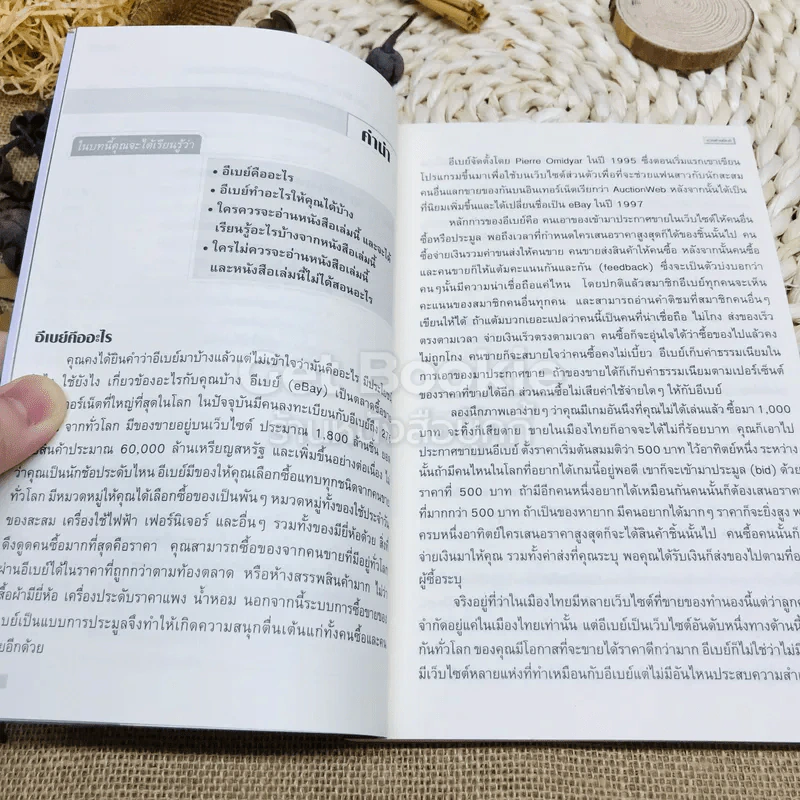 คำนำ
ในบทนี้คุณจะได้เรียนรู้ว่า
• อีเบย์คืออะไร
• อีเบย์ทำอะไรให้คุณได้บ้าง
• ใครควรจะอ่านหนังสือเล่มนี้ และจะได้
เรียนรู้อะไรบ้างจากหนังสือเล่มนี้
• ใครไม่ควรจะอ่านหนังสือเล่มนี้
และหนังสือเล่มนี้ไม่ได้สอนอะไร
อีเบย์คืออะไร
คุณคงได้ยินคำว่าอีเบย์มาบ้างแล้วแต่ไม่เข้าใจว่ามันคืออะไร มีประโยชน์
ใช้ยังไง เกี่ยวข้องอะไรกับคุณบ้าง อีเบย์ (eBay) เป็นตลาดซื้อขาย
เตอร์เน็ตที่ใหญ่ที่สุดในโลก ในปัจจุบันมีคนลงทะเบียนกับอีเบย์ถึง
จากทั่วโลก มีของขายอยู่บนเว็บไซต์ ประมาณ 1,800 ล้านชิ้น
สินค้าประมาณ 60,000 ล้านเหรียญสหรัฐ และเพิ่มขึ้นอย่างต่อเนื่อง ไม่
ว่าคุณเป็นนักช้อประดับไหน อีเบย์มีของให้คุณเลือกซื้อแทบทุกชนิดจากคนขาย
ทั่วโลก มีหมวดหมู่ให้คุณได้เลือกซื้อของเป็นพันๆ หมวดหมู่ทั้งของใช้ประจำวัน
ของสะสม เครื่องใช้ไฟฟ้า เฟอร์นิเจอร์ และอื่นๆ รวมทั้งของมียี่ห้อด้วย สิ่งที่
ดึงดูดคนซื้อมากที่สุดคือราคา คุณสามารถซื้อของจากคนขายที่มีอยู่ทั่วโลก
ผ่านอีเบย์ได้ในราคาที่ถูกกว่าตามท้องตลาด หรือห้างสรรพสินค้ามาก ไม่ว่า
เสื้อผ้ามียี่ห้อ เครื่องประดับราคาแพง น้ำหอม นอกจากนี้ระบบการซื้อขายของ
เบย์เป็นแบบการประมูลจึงทำให้เกิดความสนุกตื่นเต้นแก่ทั้งคนซื้อและคน
ยอีกด้วย
อีเบย์จัดตั้งโดย Pierre Omidyar ในปี 1995 ซึ่งตอนเริ่มแรกเขาเขียน
โปรแกรมขึ้นมาเพื่อใช้บนเว็บไซต์ส่วนตัวเพื่อที่จะช่วยแฟนสาวกับนักสะสม
คนอื่นแลกขายของกันบนอินเทอร์เน็ตเรียกว่า AuctionWeb หลังจากนั้นได้เป็น
ที่นิยมเพิ่มขึ้นและได้เปลี่ยนชื่อเป็น eBay ในปี 1997
หลักการของอีเบย์คือ คนเอาของเข้ามาประกาศขายในเว็บไซต์ให้คนอื่น
ซื้อหรือประมูล พอถึงเวลาที่กำหนดใครเสนอราคาสูงสุดก็ได้ของชิ้นนั้นไป คน
ซื้อจ่ายเงินรวมค่าขนส่งให้คนขาย คนขายส่งสินค้าให้คนซื้อ หลังจากนั้นคนซื้อ
และคนขายก็ให้แต้มคะแนนกันและกัน (feedback) ซึ่งจะเป็นตัวบ่งบอกว่า
คนๆนั้นมีความน่าเชื่อถือแค่ไหน โดยปกติแล้วสมาชิกอีเบย์ทุกคนจะเห็น
คะแนนของสมาชิกคนอื่นทุกคน และสามารถอ่านคำติชมที่สมาชิกคนอื่นๆ
เขียนให้ได้ ถ้าแต้มบวกเยอะแปลว่าคนนี้เป็นคนที่น่าเชื่อถือ ไม่โกง ส่งของเร็ว
ตรงตามเวลา จ่ายเงินเร็วตรงตามเวลา คนซื้อก็จะอุ่นใจได้ว่าซื้อของไปแล้วคง
ไม่ถูกโกง คนขายก็จะสบายใจว่าคนซื้อคงไม่เบี้ยว อีเบย์เก็บค่าธรรมเนียมใน
การเอาของมาประกาศขาย ถ้าของขายได้ก็เก็บค่าธรรมเนียมตามเปอร์เซ็นต์
ของราคาที่ขายได้อีก ส่วนคนซื้อไม่เสียค่าใช้จ่ายใดๆ ให้กับอีเบย์
ลองนึกภาพเอาง่ายๆ ว่าคุณมีเกมอันนึงที่คุณไม่ได้เล่นแล้ว ซื้อมา 1,000
บาท จะทิ้งก็เสียดาย ขายในเมืองไทยก็อาจจะได้ไม่กี่ร้อยบาท คุณก็เอาไป
ประกาศขายบนอีเบย์ ตั้งราคาเริ่มต้นสมมติว่า 500 บาท ไว้อาทิตย์หนึ่ง ระหว่าง
นั้นถ้ามีคนไหนในโลกที่อยากได้เกมนี้อยู่พอดี เขาก็จะเข้ามาประมูล (bid) ด้วย
ราคาที่ 500 บาท ถ้ามีอีกคนหนึ่งอยากได้เหมือนกันคนนั้นก็ต้องเสนอราคา
ที่มากกว่า 500 บาท ถ้าเป็นของหายาก มีคนอยากได้มากๆ ราคาก็จะยิ่งสูง พอ
ครบหนึ่งอาทิตย์ใครเสนอราคาสูงสุดก็จะได้สินค้าชิ้นนั้นไป คนซื้อคนนั้นก็
จ่ายเงินมาให้คุณ รวมทั้งค่าส่งที่คุณระบุ พอคุณได้รับเงินก็ส่งของไปตามที่อ
ผู้ซื้อระบุ
จริงอยู่ที่ว่าในเมืองไทยมีหลายเว็บไซต์ที่ขายของทำนองนี้แต่ว่าลูกค
จำกัดอยู่แค่ในเมืองไทยเท่านั้น แต่อีเบย์เป็นเว็บไซต์อันดับหนึ่งทางด้านนี้
กันทั่วโลก ของคุณมีโอกาสที่จะขายได้ราคาดีกว่ามาก อีเบย์ก็ไม่ใช่ว่าไม่มี
มีเว็บไซต์หลายแห่งที่ทำเหมือนกับอีเบย์แต่ไม่มีอันไหนประสบความสำเ
Get Bookie
ร้านหนังสือเก่า